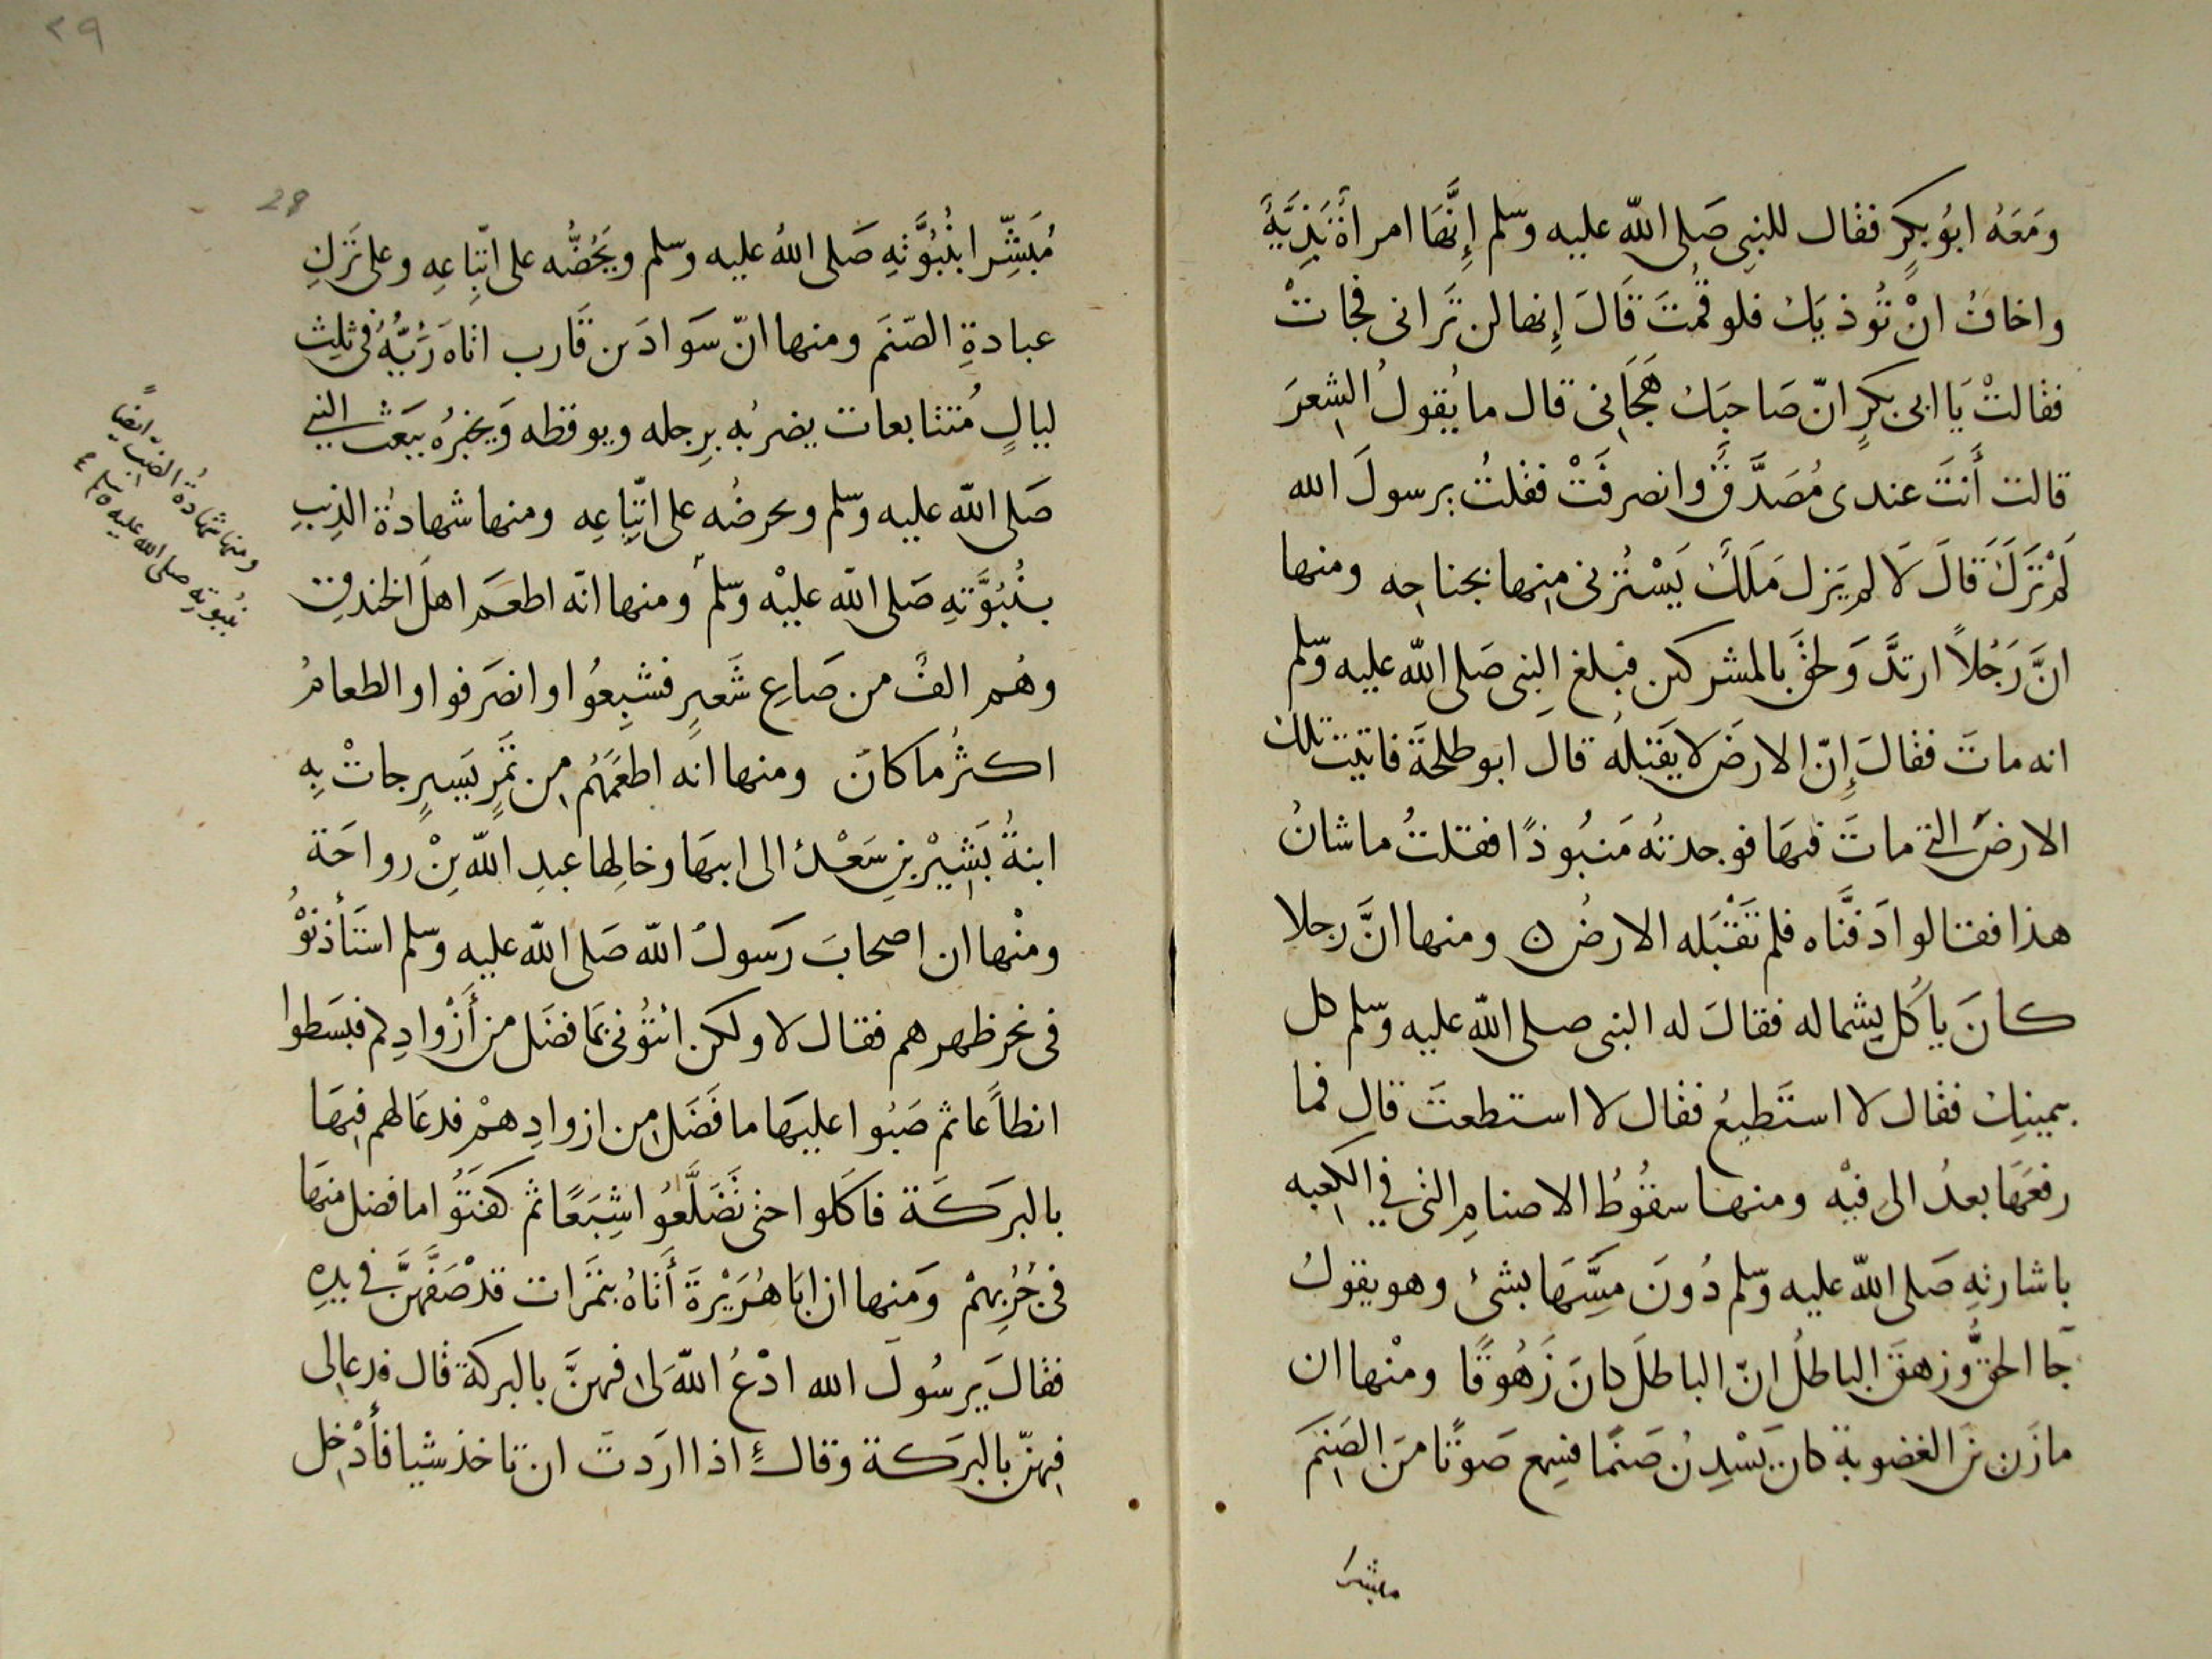 ومَعَهُ ابُو بكرٍ فقال للنبى صَلى الله عليه وسّلم إِنَّهَا امراةٌ بَذِيَّةٌ
واخافُ انْ تُوذيَك فلو قُمتَ قَالَ إِنها لن تَرانى فجاتْ
فقالتْ يَا ابى بكرٍ انّ صَاحبَك هَجَانِى قال ما يَقولُ الشِعرَ
قالت أَنتَ عندى مُصَدَّقٌ وانصرفَتْ فقلتُ يرسولَ الله
لَمْ تَرَكَ قَالَ لَا لم يَزل مَلَكٌ يَسْتُرنى مِنها بجناحِه ومنها
انَّ رَجُلاً ارتدَّ وَلحقَ بالمشركين فبلغ النِبى صَلى الله عليه وسّلم
انه ماتَ فقالَ إِنّ الارضَ لا يَقبَلُه قالَ ابو طلحَةَ فاتيت تلك
الارضَ التى ماتَ فيهَا فوجدتُه مَنبُوذًا فقلتُ ما شانُ
هذا فقالوا دَفنَّاه فلم تَقْبَله الارضُ ٥ ومنها انَّ رجلا
كانَ ياكُل بِشماله فقالَ له النبى صلى الله عليه وسّلم كل
بيمينِك فقال لا استَطيعُ فقال لا استطعتَ قال فما
رفعَهَا بعدُ الى فيْه ومنها سقُوطُ الاصنامِ التى فى الكعبِه
باشارتهِ صَلى الله عليه وسّلم دُونَ مَسَّهَا بشئ وهو يقولُ
جَآ الحقُّ وزهقَ الباطلُ انّ الباطلَ كانَ زَهُوقًا ومنْها ان
مازن بنَ الغضوبةِ كان يَسْدِنُ صَنمًا فسِمع صَوتًا منَ الصَنِمَ
مبشرا
٢٩
28
مُبَشِّرا بنُبُوَّتهِ صَلى اللهُ عليه وسلم ويَحُضُّه على اتّبِاعِهِ وعلى تَركِ
عبادةِ الصّنَمَ ومنها انّ سَوادَ بن قَارب اتاه رَئِيُّهُ فى ثلِث
ليالٍ مُتتابعات يضربُه بِرِجله ويوقظه وَيخبرُه ببَعث النبى
صَلى الله عليه وسّلم ويحرضُه على اتّبِاعِه ومنها شهادةُ الذِيبِ
بنُبُوَّتهِ صَلى الله عليْه وسّلم ومنها انّه اطعَمَ اهلَ الخندقِ
وهُم الفٌ من صَاعِ شَعيرٍ فشَبِعُوا وانصَرفوا والطعامُ
اكثرُ ما كانَ ومنها انه اطعَمَهُم مِن تَمرٍ يَسيرٍ جاتْ بِهِ
ابنةُ بَشِيْرِ بنِ سَعْدٍ الى ابيهَا وخالِها عبدِ الله بنِ رواحَة
ومنْها ان اصحابَ رَسولُ الله صَلى الله عليه وسّلم استَأذنوْهُ
فى نحرِ ظهرهم فقال لا ولكن ائتُونى بَما فضَل من أَزْوادِكم فبسَطوا
انطاعًا ثم صَبُوا عليهَا ما فَضَل مِن ازوادِهمْ فدعَا لهم فيِهَا
بالبرَكَة فاكَلوا حتى تَضَلَّعُوا شِبَعًا ثم كفَتَوُا ما فضل منهَا
فى جُرُبِهمْ وَمنها ان ابَا هُرَيْرةَ أَتاهُ بتمَرات قدْ صَفَّهنَّ فى يدِهِ
فقالَ يرسُولَ الله ادْعُ اللهَ لى فيهنَّ بالبركة قال فدعا لى
فيهنّ بالبرَكة وقالَ اذا ارَدتَ ان تاخذ شيا فأَدْخِل
ومنها شهادةُ الضبّ ايضًا
بنُبوتهِ صلى الله عليه وسلم